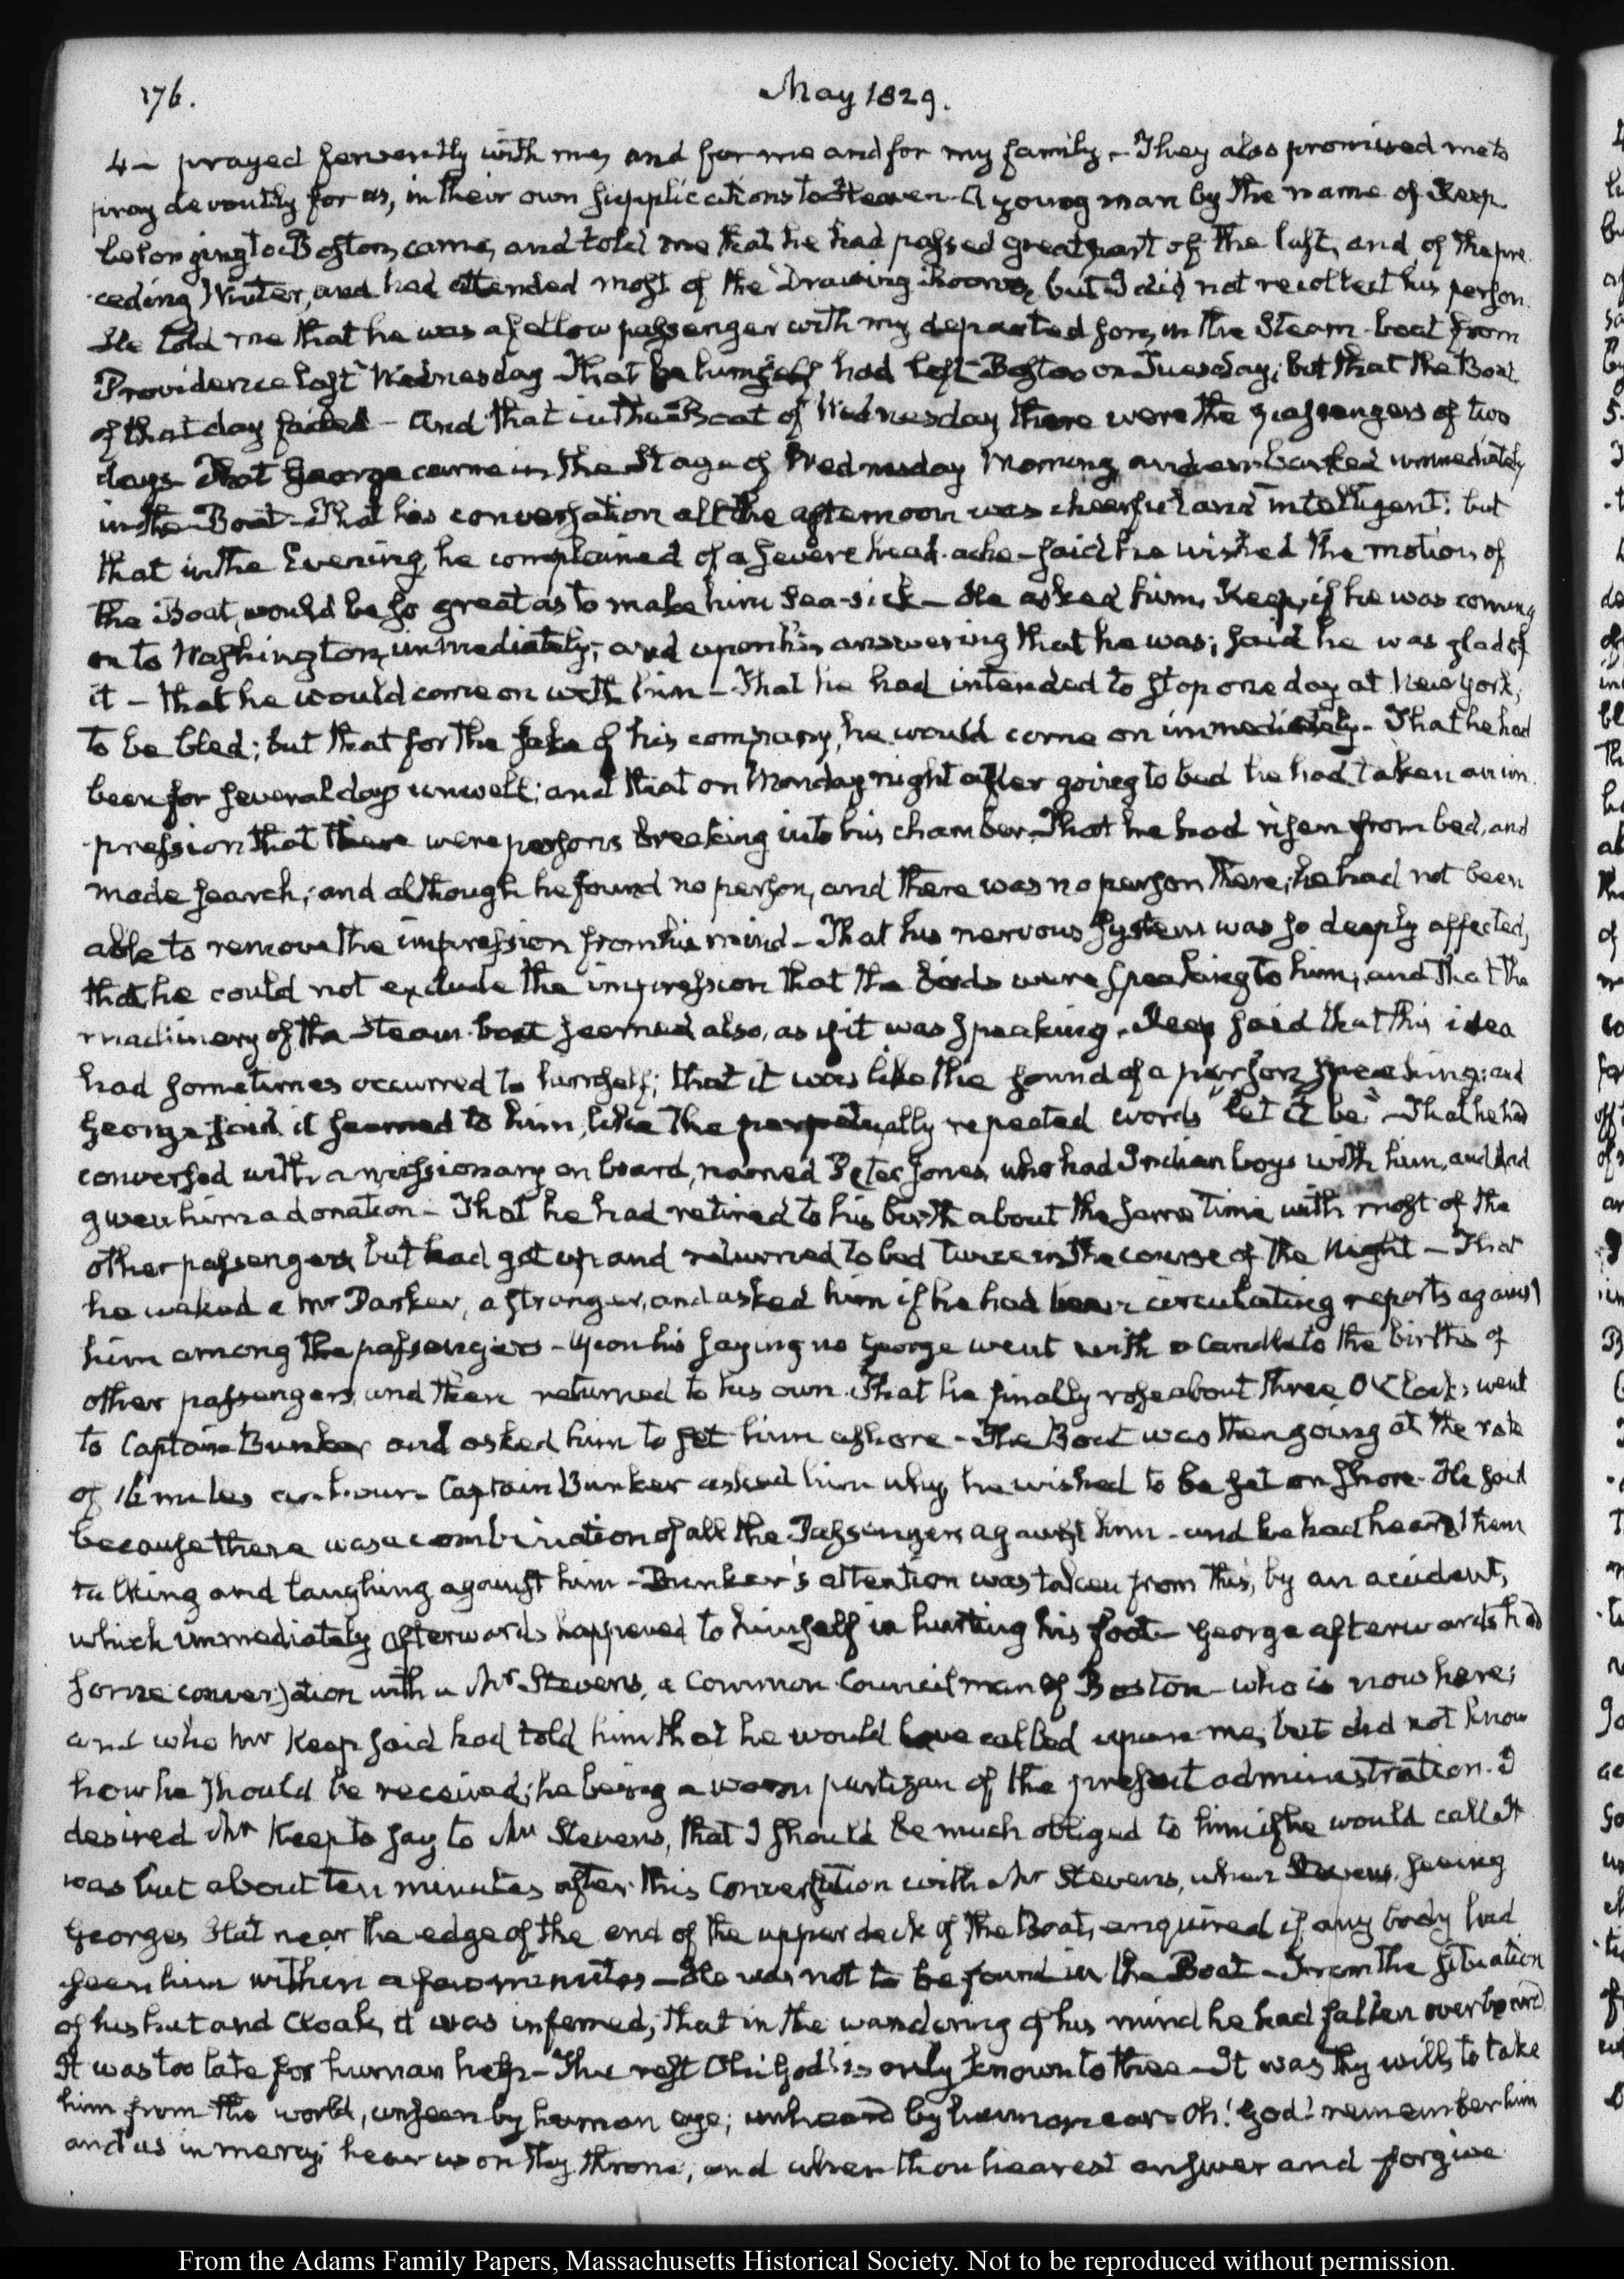 176.
May 1829.
4 — prayed fervently with me, and for me and for my family — They also promised me to
pray devoutly for us, in their own supplications to Heaven. A young man by the name of Keep
belonging to Boston, came, and told me that he had passed great part of the last, and of the pre-
ceding Winter, and had attended most of the Drawing Rooms, but I did not recollect his person.
He told me that he was a fellow passenger with my departed son, in the Steam-boat from
Providence last Wednesday — That he himself had left Boston on Tuesday; but that the Boat
of that day failed — And that in the Boat of Wednesday there were the passengers of two
days — That George came in the Stage of Wednesday Morning, and embarked immediately
in the Boat — That his conversation all the afternoon was cheerful and intelligent: but
that in the Evening, he complained of a severe head-ache — said he wished the motion of
the Boat, would be so great as to make him sea-sick — He asked him, Keep, if he was coming
on to Washington, immediately; and upon his answering that he was; said he was glad of
it — that he would come on with him — That he had intended to stop one day at New York,
to be bled; but that for the sake of his company, he would come on immediately — That he had
been for several days unwell; and that on Monday night after going to bed he had taken an im-
pression that there were persons breaking into his chamber. That he had risen from bed, and
made search; and although he found no person, and there was no person there; he had not been
able to remove the impression from his mind — That his nervous system was so deeply affected,
that he could not exclude the impression that the birds were speaking to him; and that the
machinery of the Steam-boat seemed also, as if it was speaking. Keep said that this idea
had sometimes occurred to himself; that it was like the sound of a person speaking: and
George said it seemed to him, like the perpetually repeated words "let it be" — That he had
conversed with a missionary on board, named Peter Jones, who had Indian boys with him, and had
given him a donation — That he had retired to his birth about the same time with most of the
other passengers, but had got up and returned to bed twice in the course of the Night — That
he waked a Mr Parker, a stranger, and asked him if he had been circulating reports against
him among the passengers — Upon his saying no George went with a candle to the births of
other passengers, and then returned to his own. That he finally rose about three O'Clock, went
to Captain Bunker and asked him to set him ashore — The Boat was then going at the rate
of 16 miles an hour. Captain Bunker asked him why, he wished to be set on shore. He said
because there was a combination of all the Passengers against him — and he had heard them
talking and laughing against him — Bunker's attention was taken from this, by an accident,
which immediately afterwards happened to himself in hurting his foot — George afterwards had
some conversation with a Mr Stevens, a Common Council man of Boston — who is now here;
and who Mr Keep said had told him that he would have called upon me, but did not know
how he should be received; he being a warm partizan of the present administration. I
desired Mr Keep to say to Mr Stevens, that I should be much obliged to him if he would call. It
was but about ten minutes after this Conversation with Mr Stevens, when Stevens, seeing
George's Hat near the edge of the end of the upper deck of the Boat, enquired if any body had
seen him within a few minutes — He was not to be found in the Boat — From the situation
of his hat and Cloak, it was inferred, that in the wandering of his mind he had fallen overboard
It was too late for human help — The rest Oh! God! is only known to thee — It was thy will, to take
him from the world, unseen by human eye; unheard by human ear. Oh! God! remember him
and us in mercy; hear us on thy throne, and when thou hearest answer and forgive
From the Adams Family Papers, Massachusetts Historical Society. Not to be reproduced without permission.